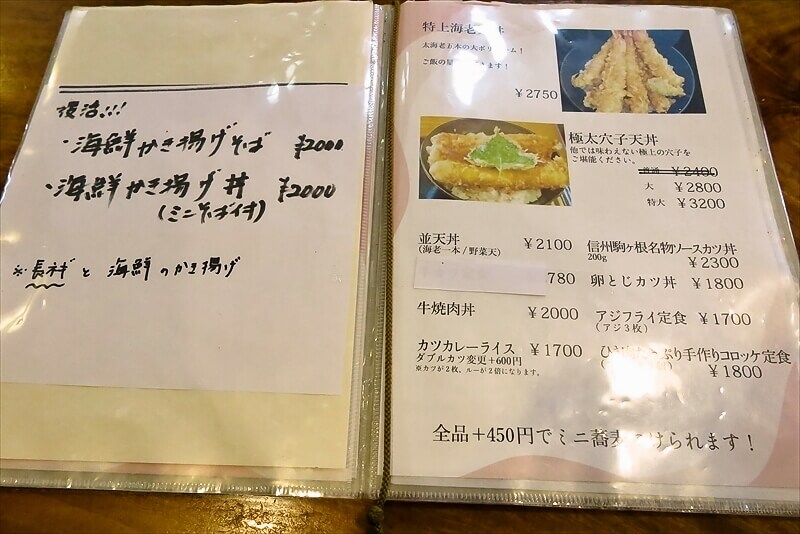 復活!!!
・海鮮かき揚げそば ¥2000
・海鮮かき揚げ丼 ¥2000
(ミニそば付)
※長ネギと海鮮のかき揚げ
特上海老天丼
太海老五本の大ボリューム！
ご飯の きます！
￥2750
極太穴子天丼
他では味わえない極上の穴子を
ご堪能ください。
普通 ￥2400
大 ￥2800
特大 ￥3200
並天丼 ￥2100
(海老一本/野菜天)
780
牛焼肉丼 ￥2000
カツカレーライス ￥1700
ダブルカツ変更＋600円
※カツが2枚、ルーが2倍になります。
信州駒ヶ根名物ソースカツ丼
200g ￥2300
卵とじカツ丼 ￥1800
アジフライ定食 ￥1700
(アジ3枚)
ひき ぷり手作りコロッケ定食
￥1800
全品＋450円でミニ蕎麦 けられます！